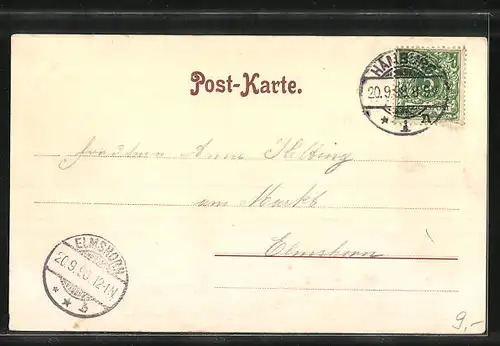 Post-Karte.
HAMBURG
20.9.98.
* 1 n.
Anna Hilbing
am Markt
Elmshorn
ELMSHORN
20.9.98.12-1N
* * b
9,-